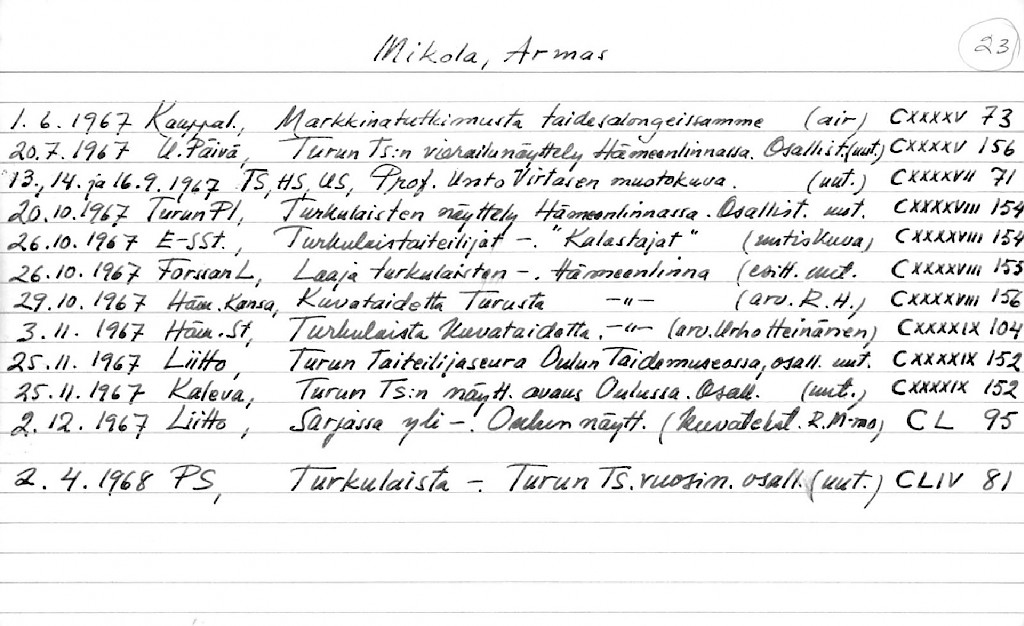 Mikola, Armas
23
1.6.1967 Kauppal., Markkinatutkimusta taidesalongeissamme (air) CXXXXV 73
20.7.1967 U.Päivä, Turun Ts:n vierailunäyttely Hämeenlinnassa. Osallist.(uut.) CXXXXV 156
13., 14. ja 16.9.1967 TS, HS, US, Prof. Unto Virtasen muotokuva. (uut.) CXXXXVII 71
20.10.1967 TurunPl, Turkulaisten näyttely Hämeenlinnassa. Osallist. uut. CXXXXVIII 154
26.10.1967 E-SSt., Turkulaistaiteilijat -. "Kalastajat" (uutiskuva) CXXXXVIII 154
26.10.1967 ForssanL, Laaja turkulaisten -. Hämeenlinna (esitt. uut. CXXXXVIII 155
29.10.1967 Häm.Kansa, Kuvataidetta Turusta -"- (arv. R.H.) CXXXXVIII 156
3.11.1967 Häm.St, Turkulaista kuvataidetta. -"- (arv.Urho Heinänen) CXXXXIX 104
25.11.1967 Liitto, Turun Taiteilijaseura Oulun Taidemuseossa, osall. uut. CXXXXIX 152
25.11.1967 Kaleva, Turun Ts:n näytt. avaus Oulussa. Osall. (uut.) CXXXXIX 152
2.12.1967 Liitto, Sarjassa yli -. Oulun näytt. (kuvatekst. R.M-mo) CL 95
2.4.1968 PS, Turkulaista -. Turun Ts. vuosin. osall. (uut.) CLIV 81